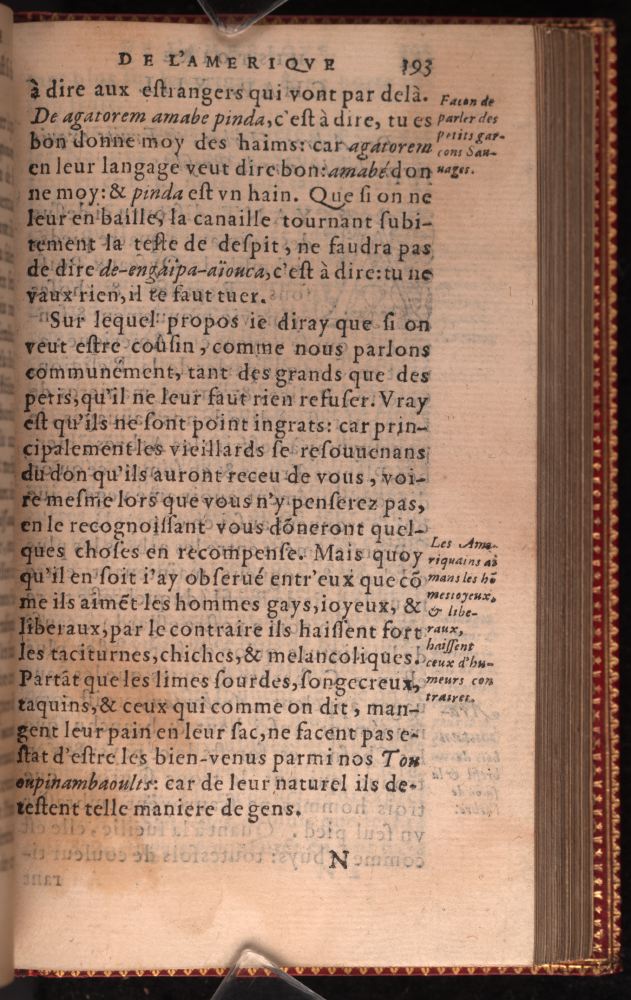 DE L'AMERIQVE 193
à dire aux eſtrangers qui vont par delà.
De agatorem amabe pinda, c'eſt à dire, tu es
bon donne moy des haims: car agatorem
en leur langage veut dire bon: amabé don
ne moy: & pinda eſt vn hain. Que ſi on ne
leur en baille, la canaille tournant ſubi-
tement la teſte de deſpit, ne faudra pas
de dire de-engaipa-aïouca, c'eſt à dire: tu ne
vaux rien, il te faut tuer.
Sur lequel propos ie diray que ſi on
veut eſtre couſin, comme nous parlons
communément, tant des grands que des
petis, qu'il ne leur faut rien refuſer. Vray
eſt qu'ils ne ſont point ingrats: car prin-
cipalement les vieillards ſe reſouuenans
du don qu'ils auront receu de vous, voi-
re meſme lors que vous n'y penſerez pas,
en le recognoiſſant vous dõneront quel-
ques choſes en recompenſe. Mais quoy
qu'il en ſoit i'ay obſerué entr'eux que cõ
me ils aimẽt les hommes gays, ioyeux, &
liberaux, par le contraire ils haiſſent fort
les taciturnes, chiches, & melancoliques.
Partãt que les limes ſourdes, ſongecreux,
taquins, & ceux qui comme on dit, man-
gent leur pain en leur ſac, ne facent pas e-
ſtat d'eſtre les bien-venus parmi nos Tou
oupinambaoults: car de leur naturel ils de-
teſtent telle maniere de gens.
N
Facon de
parler des
petits gar-
cons Sau-
uages.
Les Ame-
riquains ai
mans les hõ
mes ioyeux,
& libe-
raux,
haiſſent
ceux d'hu-
meurs con
traires.